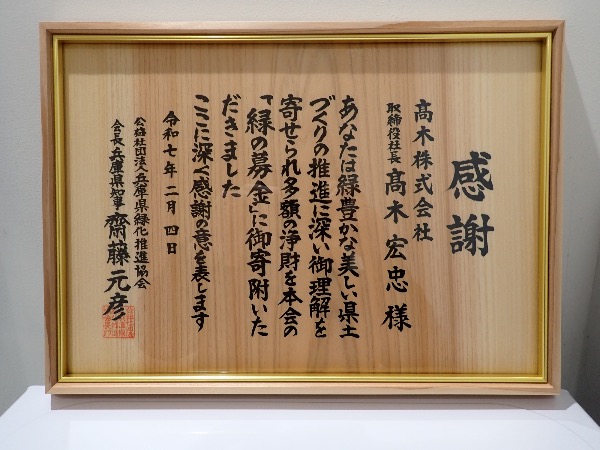 感謝
髙木株式会社
取締役社長 髙木宏忠様
あなたは緑豊かな美しい県土
づくりの推進に深い御理解を
寄せられ多額の浄財を本会の
「緑の募金」に御寄附いた
だきました
ここに深く感謝の意を表します
令和七年二月四日
公益社団法人兵庫県緑化推進協会
会長兵庫県知事 齋藤元彦